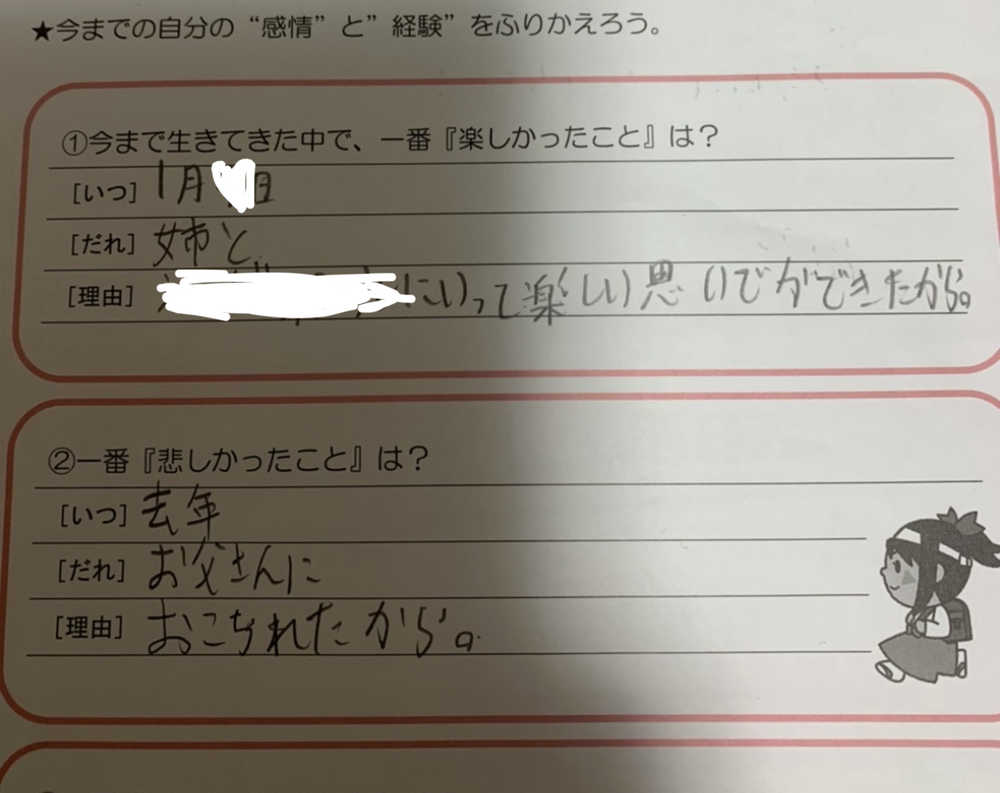 ★今までの自分の“感情”と”経験”をふりかえろう。
①今まで生きてきた中で、一番『楽しかったこと』は？
[いつ] 1月 日
[だれ] 姉と
[理由] にいって楽しい思いでができたから。
②一番『悲しかったこと』は？
[いつ] 去年
[だれ] お父さんに
[理由] おこられたから。